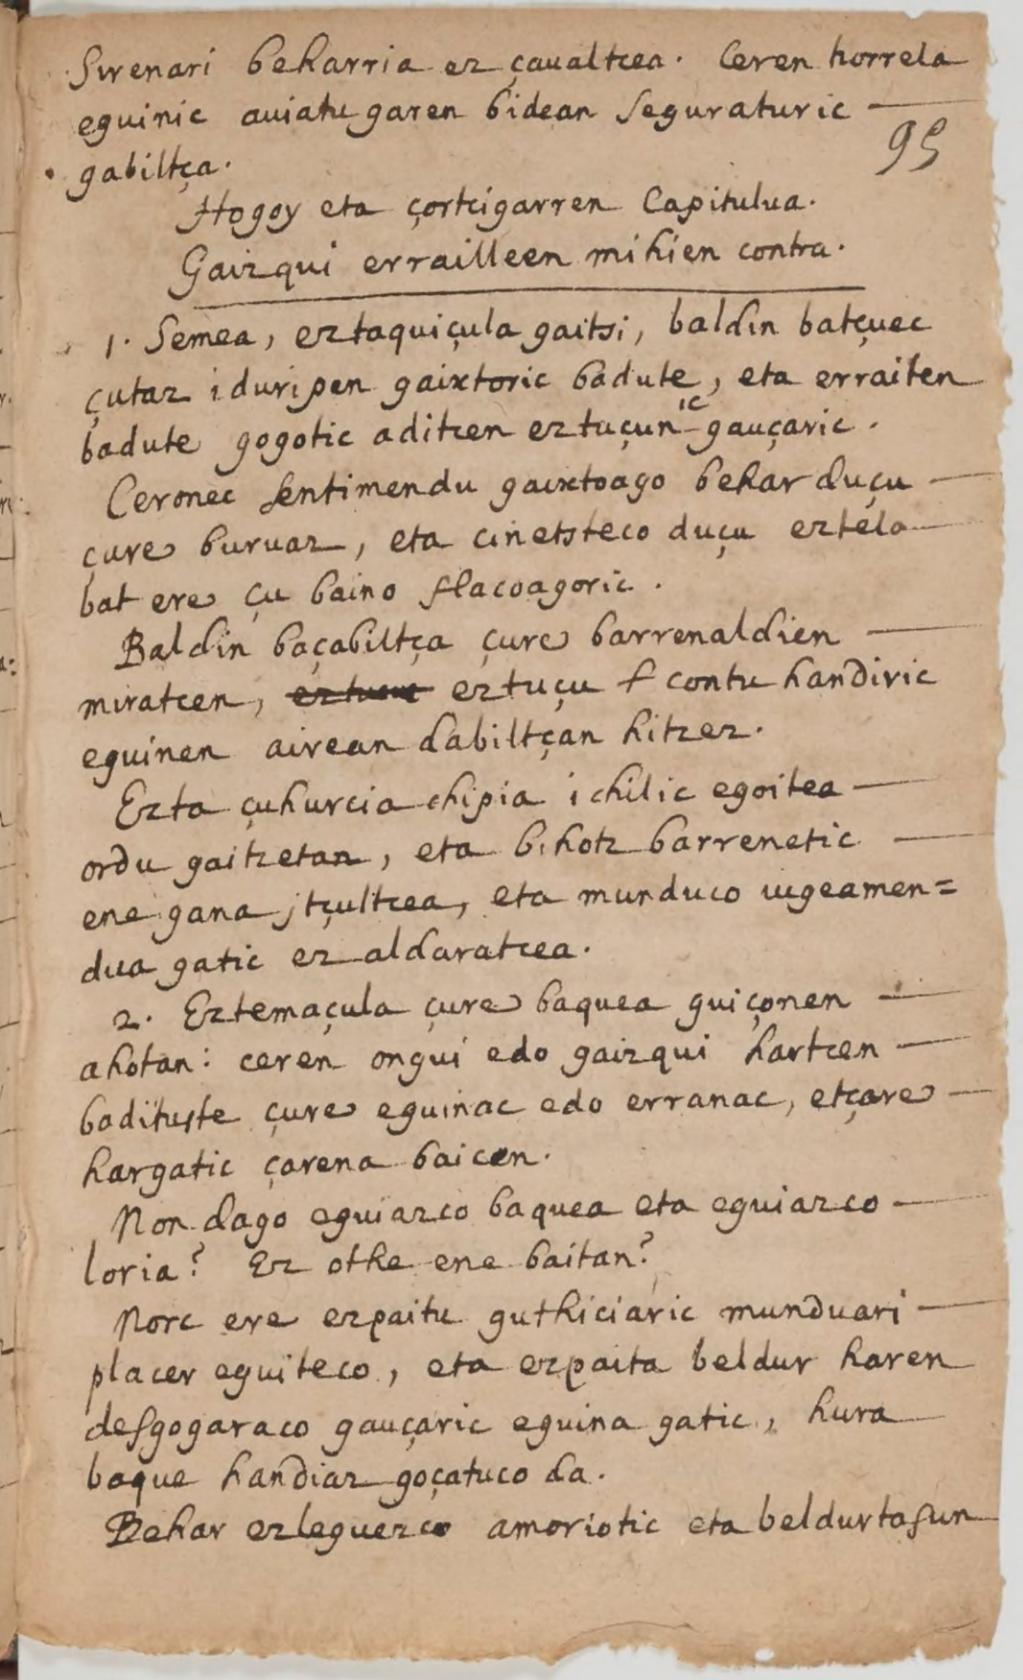 Sirenari beharria ez çaualtcea. Ceren horrela
eguinic auiatu garen bidean seguraturic —
95
gabiltça.
Hogoy eta çortcigarren Capitulua.
Gaizqui errailleen mihien contra.
1. Semea, eztaquiçula gaitsi, baldin batçuec
çutaz iduripen gaixtoric badute, eta erraiten
badute gogotic aditcen eztuçunic gauçaric.
Ceronec sentimendu gaixtoago behar duçu —
çure buruaz, eta cinetsteco duçu eztela —
bat ere çu baino flacoagoric.
Baldin baçabiltça çure barrenaldien —
miratcen, eztuçu contu handiric
eguinen airean dabiltçan hitzez.
Ezta çuhurcia chipia ichilic egoitea —
ordu gaitzetan, eta bihotz barrenetic —
ene gana jtçultcea, eta munduco iugeamen=
dua gatic ez aldaratcea.
2. Eztemaçula çure baquea guiçonen —
ahotan: ceren ongui edo gaizqui hartcen —
badituste çure eguinac edo erranac, etçare —
hargatic çarena baicen.
Non dago eguiazco baquea eta eguiazco —
loria? Ez othe ene baitan?
Norc ere ezpaitu guthiciaric munduari —
placer eguiteco, eta ezpaita beldur haren
desgogaraco gauçaric eguina gatic, hura —
baque handiaz goçatuco da.
Behar ezleguezco amoriotic eta beldurtasun